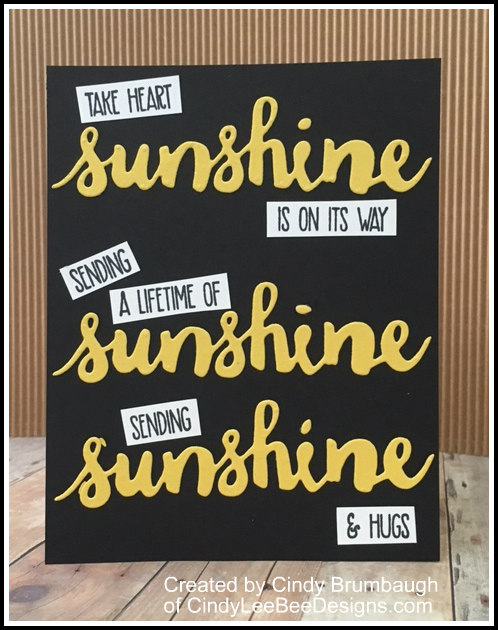 TAKE HEART
sunshine
IS ON ITS WAY
SENDING
A LIFETIME OF
sunshine
SENDING
sunshine
& HUGS
Created by Cindy Brumbaugh
of CindyLeeBeeDesigns.com